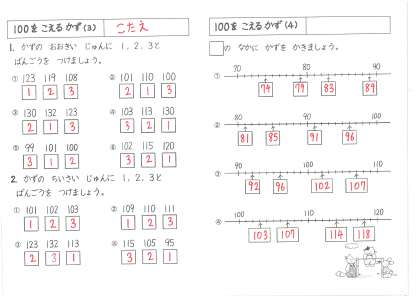 100を こえる かず(3) こたえ
1. かずの おおきい じゅんに 1, 2, 3と
ばんごうを つけましょう。
① 123 119 108
1 2 3
② 120 110 100
2 1 3
③ 130 132 123
2 1 3
④ 103 113 130
3 2 1
⑤ 99 101 100
3 1 2
⑥ 102 115 120
3 2 1
2. かずの ちいさい じゅんに 1, 2, 3と
ばんごうを つけましょう。
① 101 102 103
1 2 3
② 109 110 111
1 2 3
③ 123 132 113
2 3 1
④ 115 105 95
3 2 1
100を こえる かず(4)
の なかに かずを かきましょう。
① 70 80 90
74 79 83 89
② 80 90 100
81 85 91 96
③ 90 100 110
92 96 102 107
④ 100 110 120
103 107 114 118